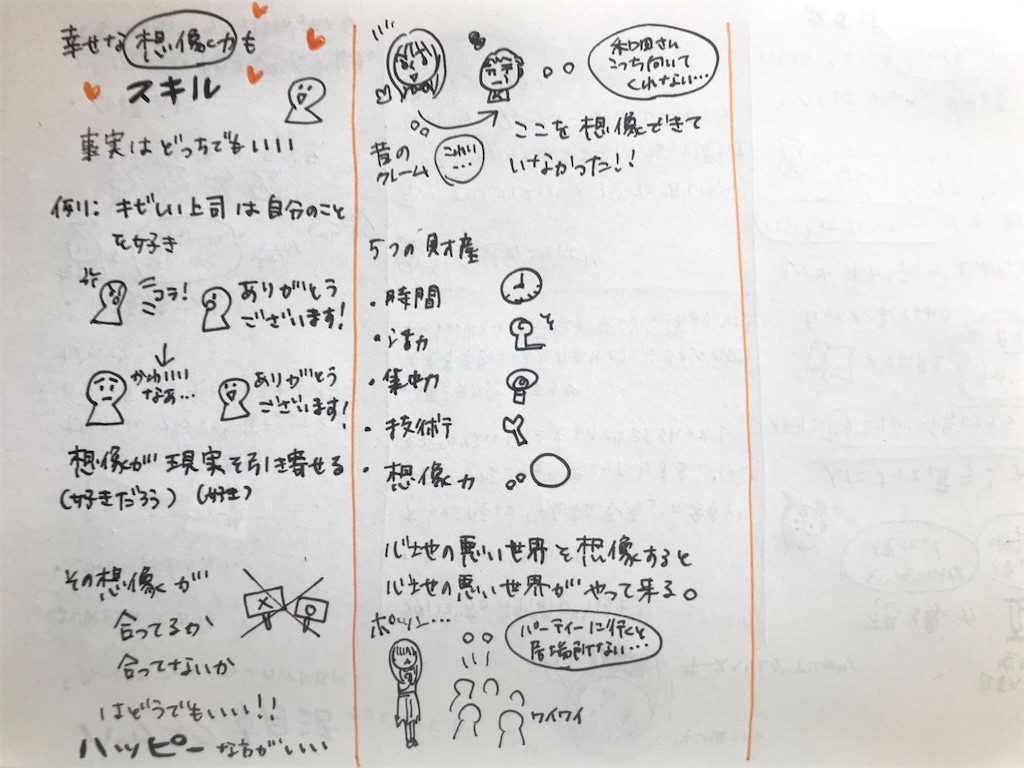 幸せな想像力も
スキル
事実はどっちでもいい
例り: キビしい上司は自分のこと
を好き
コラ!
ありがとう
ございます!
かわいい
なぁ…
ありがとう
ございます!
想像が現実を引き寄せる
(好きだろう) (好き)
その想像が
合ってるか
合ってないか
はどうでもいい!!
ハッピーな方がいい
和田さん
こっち向いて
くれない…
昔の
クレーム
こわい
…
ここを想像できて
いなかった!!
5つの財産
・時間
・活力
・集中力
・技術
・想像力
心地の悪い世界を想像すると
心地の悪い世界がやって来る。
ポツン…
パーティーに行くと
居場所ない…
ワイワイ